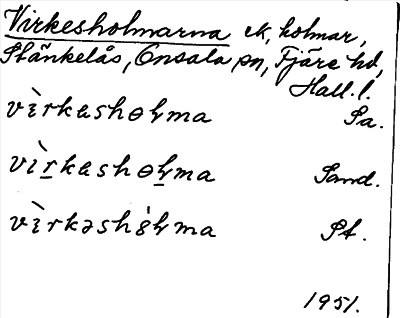 Virkesholmarna ek, holmar,
Stänkelås, Onsala sn, Fjäre hd,
Hall. l.
vìrkashoɫma Sa.
vìrkashoɫma Sand.
vìrkəshɵ́ɫma St.
1951.